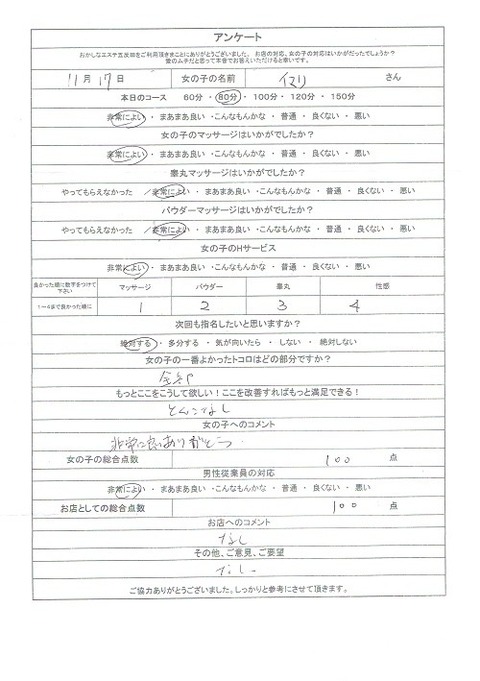 アンケート
おかしなエステ五反田をご利用頂きまことにありがとうございました。お店の対応、女の子の対応はいかがだったでしょうか？
11月17日 女の子の名前 イマリ さん
本日のコース 60分・80分・100分・120分・150分
非常によい・まあまあ良い・こんなもんかな・普通・良くない・悪い
女の子のマッサージはいかがでしたか？
非常によい・まあまあ良い・こんなもんかな・普通・良くない・悪い
睾丸マッサージはいかがでしたか？
やってもらえなかった／非常によい・まあまあ良い・こんなもんかな・普通・良くない・悪い
パウダーマッサージはいかがでしたか？
やってもらえなかった／非常によい・まあまあ良い・こんなもんかな・普通・良くない・悪い
女の子のHサービス
非常によい・まあまあ良い・こんなもんかな・普通・良くない・悪い
良かった順に数字をつけて下さい マッサージ パウダー 睾丸 性感
1～4まで良かった順に 1 2 3 4
次回も指名したいと思いますか？
絶対する・多分する・気が向いたら・しない・絶対しない
女の子の一番よかったトコロはどの部分ですか？
全部
もっとここをこうして欲しい！ここを改善すればもっと満足できる！
とくになし
女の子へのコメント
非常に良いありがとう
女の子の総合点数 100 点
男性従業員の対応
非常によい・まあまあ良い・こんなもんかな・普通・良くない・悪い
お店としての総合点数 100 点
お店へのコメント
なし
その他、ご意見、ご要望
なし
ご協力ありがとうございました。しっかりと参考にさせて頂きます。